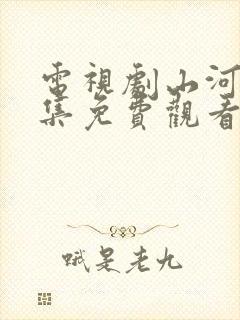 電視劇山河
集免費觀看
哦是老九